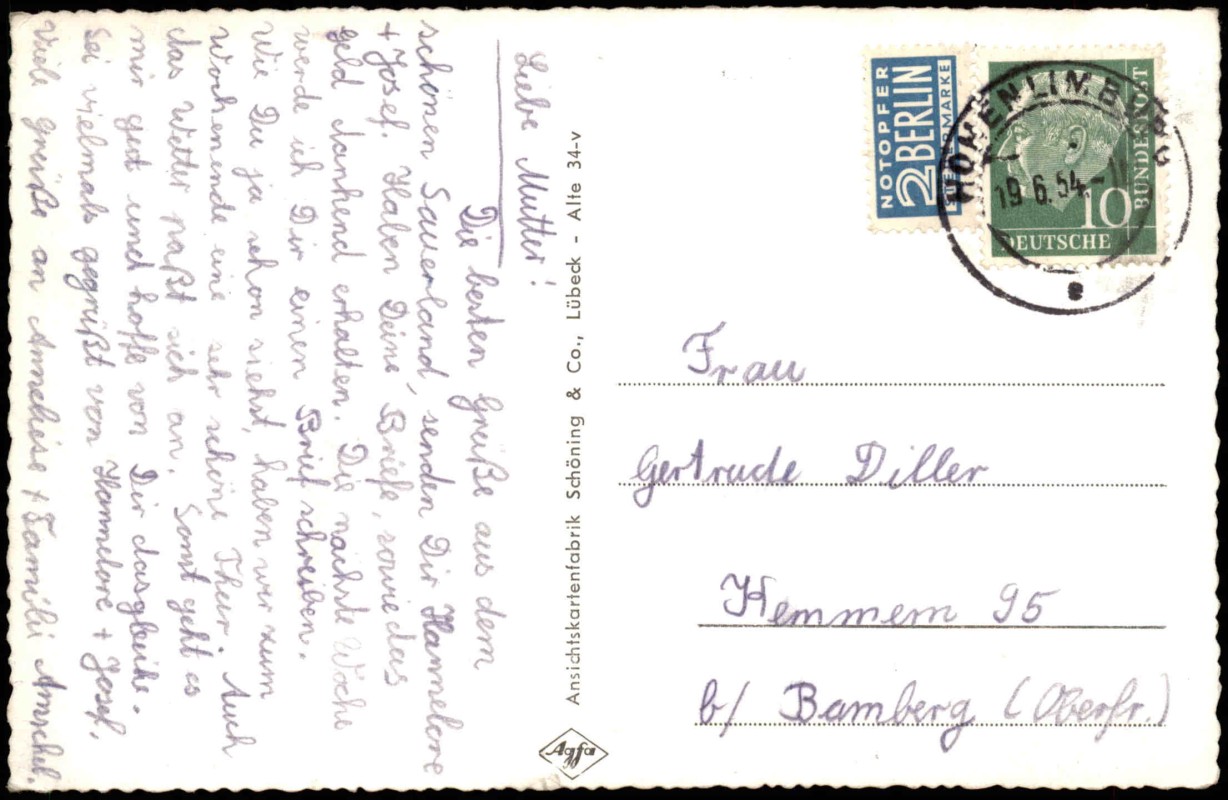 Liebe Mutter!
Die besten Grüße aus dem
schönen Sauerland, senden Dir Hannelore
+ Josef. Haben Deine Briefe, sowie das
geld dankend erhalten. Die nächste Woche
werde ich Dir einen Brief schreiben.
Wie Du ja schon siehst, haben wir zum
Wochenende eine sehr schöne Auch
das Wetter paßt sich an. Sonst geht es
mir gut und hoffe von Dir dasgleiche.
Sei vielmals gegrüßt von Hannelore + Josef.
Viele grüße an Anneliese + Familie
Ansichtskartenfabrik Schöning & Co., Lübeck - Alte 34-v
Agfa
NOTOPFER
2 BERLIN
STEUERMARKE
HOHENLIMBURG
19.6.54.-11
e
10
DEUTSCHE
BUNDESPOST
Frau
Gertrude Diller
Kemmern 95
b/ Bamberg (Oberfr.)